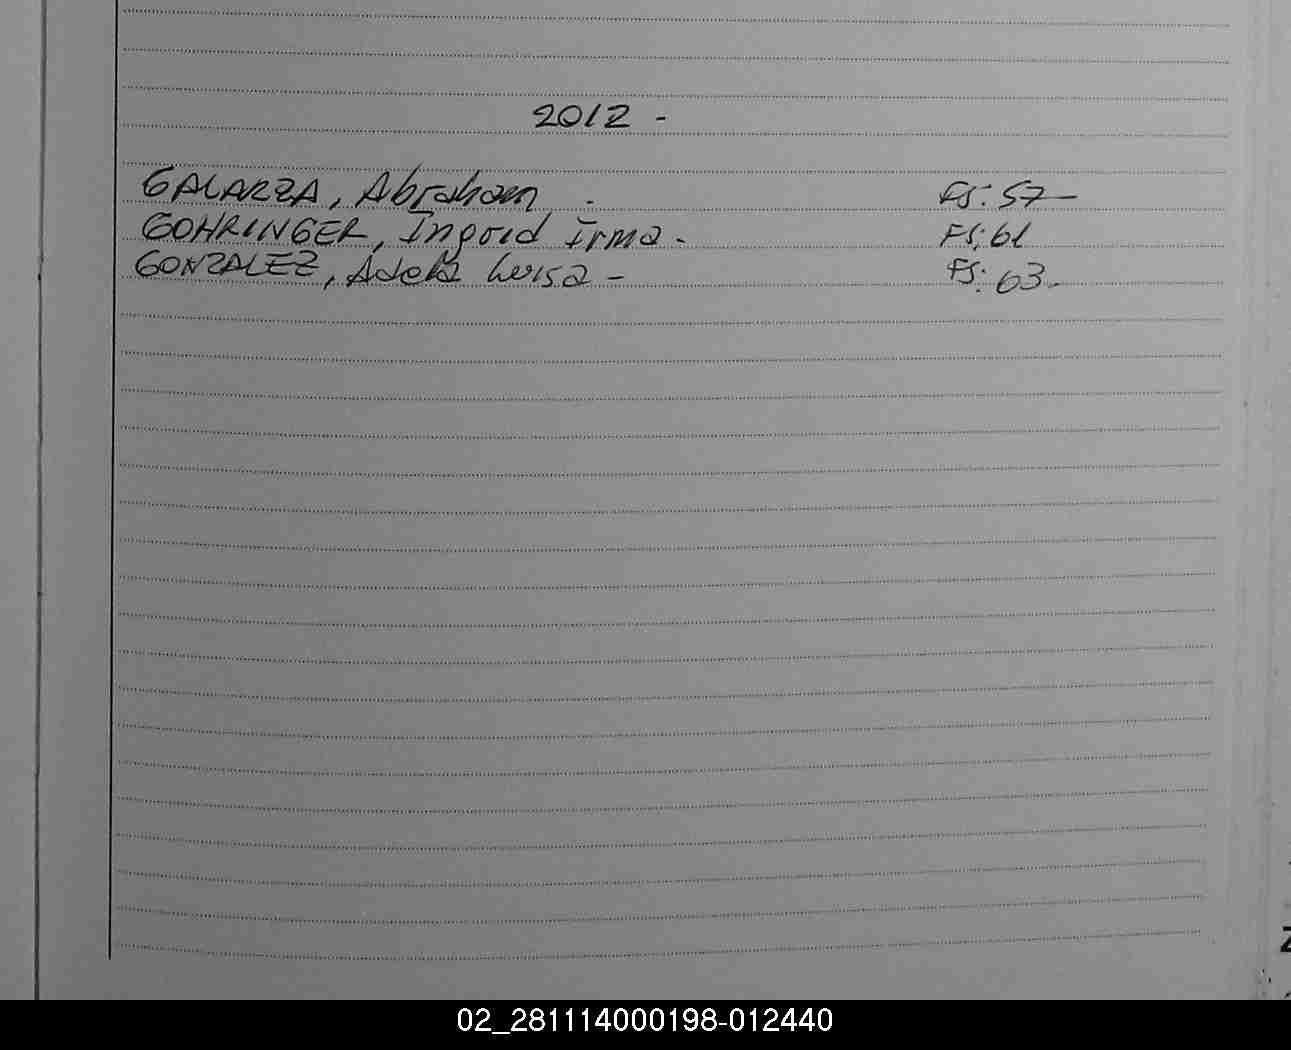 2012 -
GALARZA, Abraham . FS: 57-
GOHRINGER, Ingrid Irma. FS: 61
GONZALEZ, Adela Luisa - FS: 63.
02_281114000198-012440